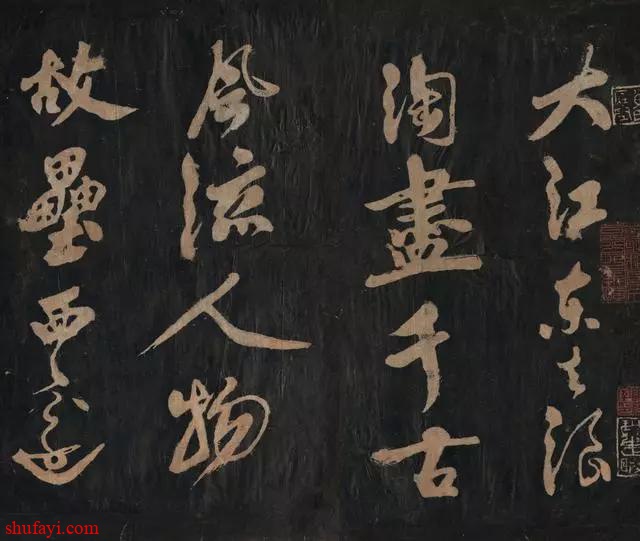 大江東去浪
淘盡千古
風流人物
故壘西邊
shufayi.com